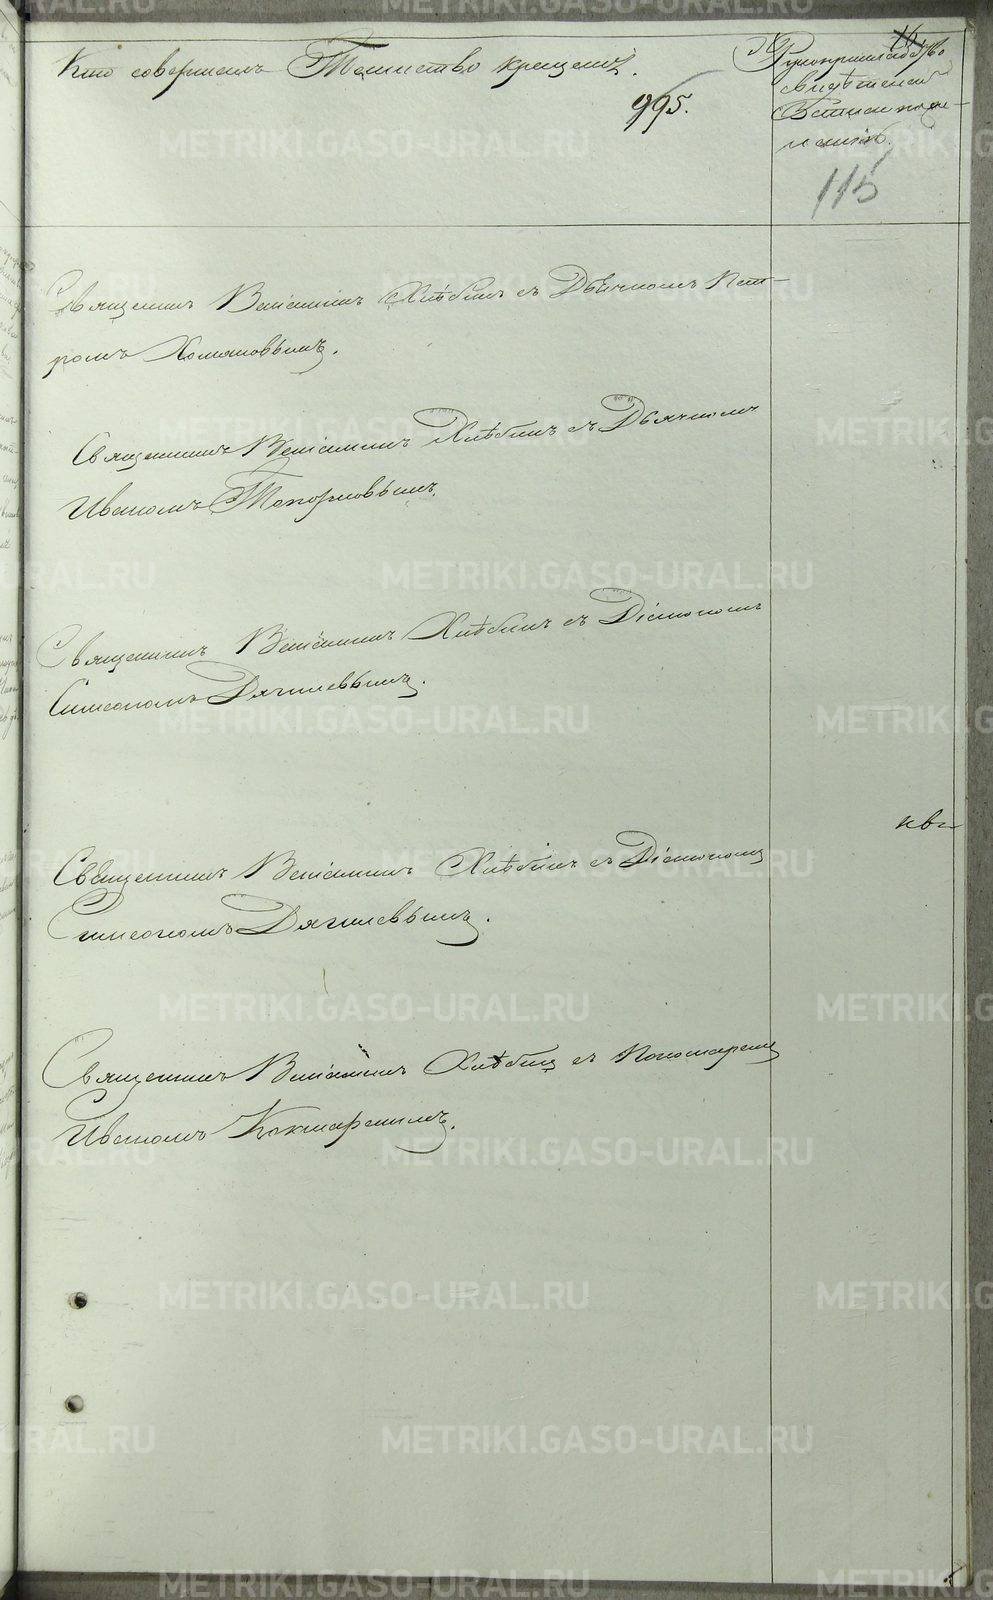 Кто совершалъ Таинство крещенія.
995.
Рукоприкладство
свидѣтелей
записи по же-
ланію.
115
Священникъ Веніаминъ Хлѣбинъ съ Дьячкомъ Пет-
ромъ Хомяковымъ.
Священникъ Веніаминъ Хлѣбинъ съ Дьячкомъ
Иваномъ Топорковымъ.
Священникъ Веніаминъ Хлѣбинъ съ Діакономъ
Симеономъ Дягилевымъ.
Священникъ Веніаминъ Хлѣбинъ съ Діакономъ
Симеономъ Дягилевымъ.
Священникъ Веніаминъ Хлѣбинъ съ Пономаремъ
Иваномъ Кокшаровымъ.
METRIKI.GASO-URAL.RU